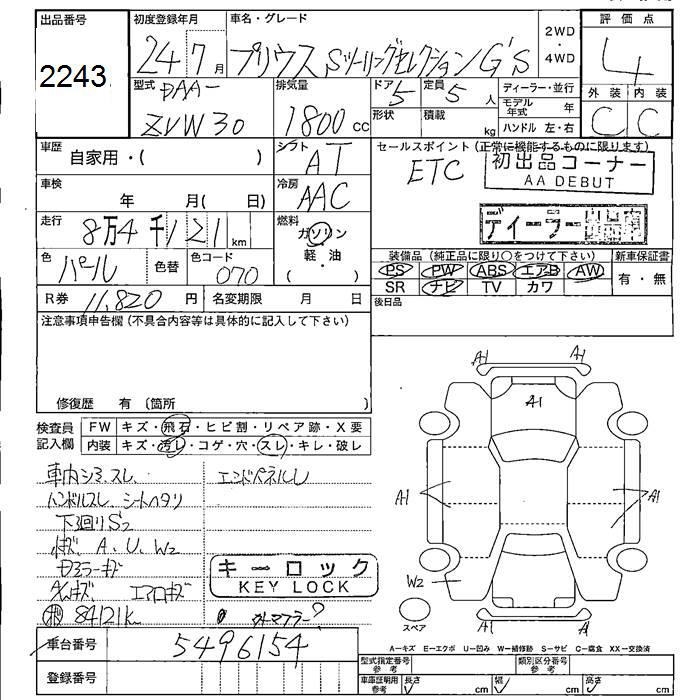 出品番号
2243
初度登録年月
24 7月
車名・グレード
プリウス Sツーリングセレクション G'S
2WD
・
4WD
評価点
4
外装 内装
C C
型式
DAA-
ZVW30
排気量
1800 cc
ドア 定員
5 5 人
形状 積載
kg
ディーラー・並行
モデル年式 年
ハンドル 左・右
車歴
自家用・( )
シフト
AT
セールスポイント (正常に機能するものに限ります)
ETC
初出品コーナー
AA DEBUT
ディーラー出品車
車検
年 月( 日)
冷房
AAC
走行
8万4千121 km
燃料
ガソリン
・
軽油
・
( )
色
パール
色替
色コード
070
装備品 (純正品に限り○をつけて下さい)
PS PW ABS エアB AW
SR ナビ TV カワ
新車保証書
有・無
R券 11,820 円
名変期限 月 日
後日品
注意事項申告欄 (不具合内容等は具体的に記入して下さい)
修復歴 有 (箇所 )
検査員
記入欄
FW キズ・飛石・ヒビ割・リペア跡・X要
内装 キズ・汚レ・コゲ・穴・スレ・キレ・破レ
車内シミ、スレ、
ハンドルスレ シートヘタリ
下廻りS2
A、U、W2
エアロキズ
84121K
エンドパネルU
キーロック
KEY LOCK
車台番号
5496154
登録番号
A1 A1
A1
A1 A1
W2
A1 A1
スペア
A―キズ E―エクボ U―凹み W―補修跡 S―サビ C―腐食 XX―交換済
型式指定番号
参考
類別区分番号
参考
車庫証明用
参考
長さ cm
幅 cm
高さ cm